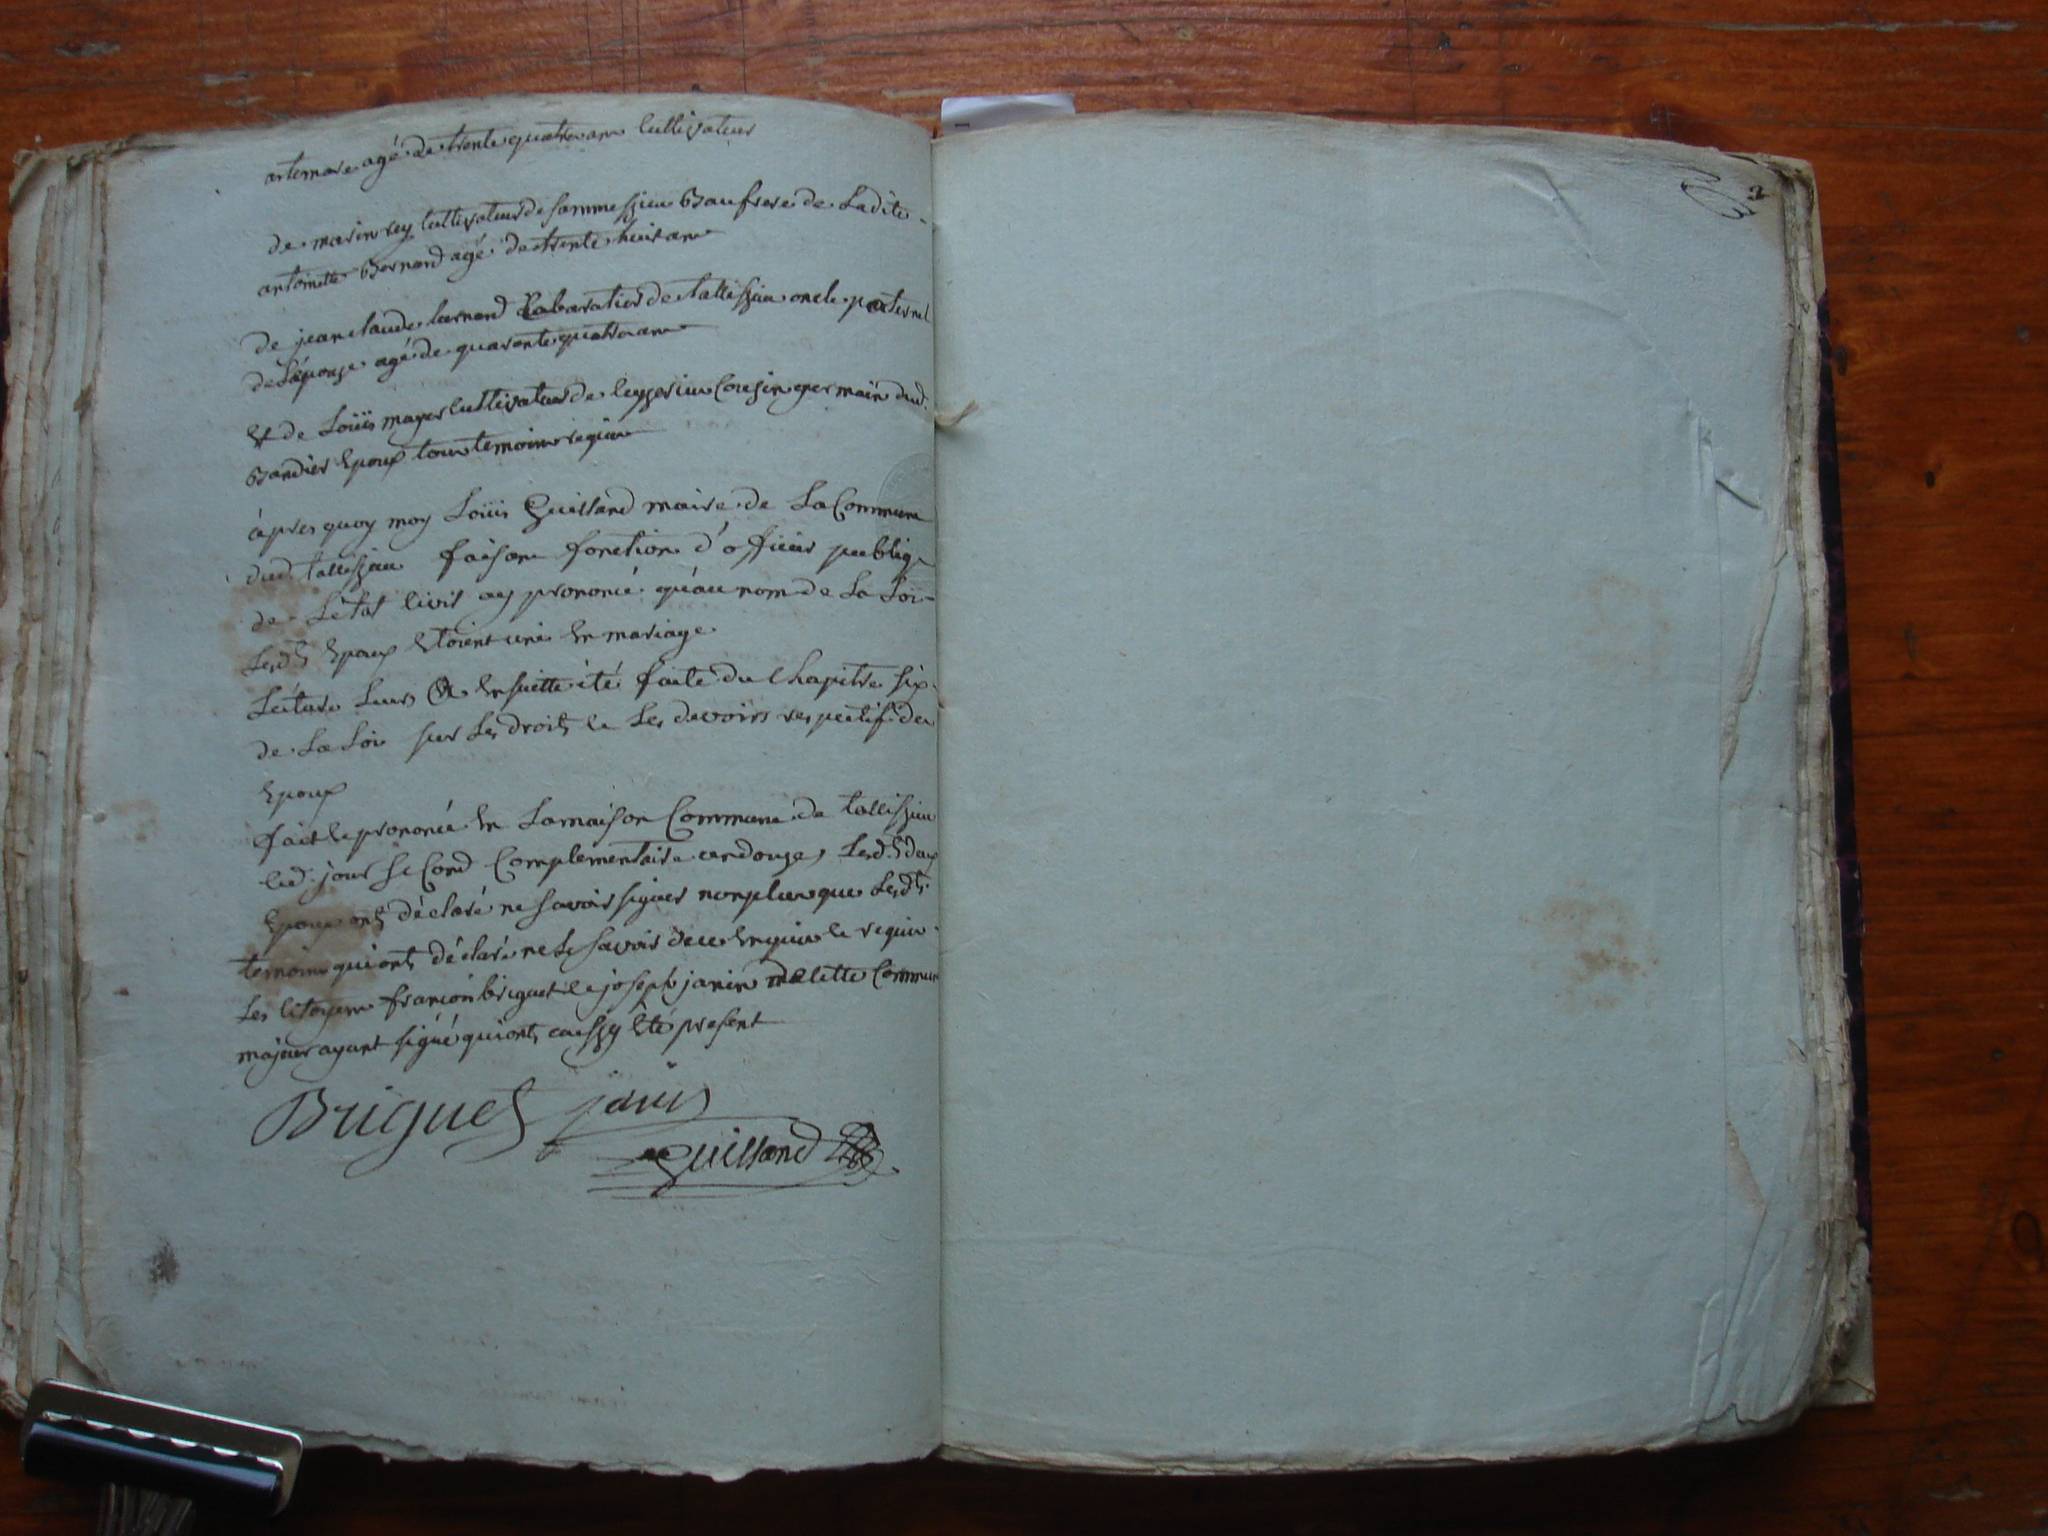 artemare agé de trente quatre ans cultivateur
de marin rey cultivateur de sammeyzieu Beaufrere de Ladite
antoinette Bernard agé de trente huit ans
de jean claude bernard Cabaratier de tallissieu oncle paternel
de L'épouse agé de quarante quatre ans
Et de Loüis mayer cultivateur de leyssieu Cousin germain dud.
Bandier Epoux tous temoins requis
àpres quoy moy Loüis Guilland maire de La Commune
dud. tallissieu faisan fonction d'officier publiq
de L'état civil ay prononcé qu'au nom de La Loi
Lesd.ts Epoux Etoient unis En mariage
Lécture Leurs A Ensuitte été faite du Chapitre six
de La Loi sur Les droits et Les devoirs respectifs des
Epoux
fait et prononcé En La maison Commune de tallissieu
led. jour second Complementaire an douze, Lesd.ts deux
Epoux ont déclaré ne savoir signer non plus que Lesd.ts
temoins qui ont déclaré ne Le savoir de ce Enquis et requis
Les Citoyens françoi briguet et joseph janin de cette Commune
majeur ayant signé qui ont aussy Eté present
Briguet janin
Guilland
2